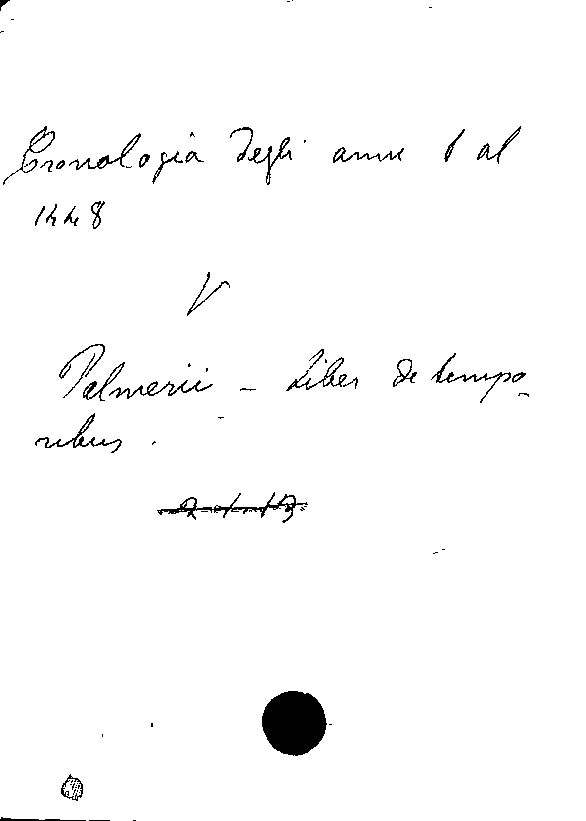 Cronologia degli anni 1 al
1448
V
Palmerii - Liber de tempo-
ribus.